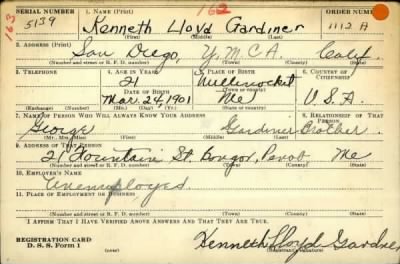 SERIAL NUMBER 1. NAME (Print) ORDER NUMBER
163 5139 Kenneth Lloyd Gardiner 162 1112 A
(First) (Middle) (Last)
2. ADDRESS (Print)
San Diego, Y.M.C.A. Calif.
(Number and street or R. F. D. number) (Town) (County) (State)
3. TELEPHONE 4. AGE IN YEARS 5. PLACE OF BIRTH 6. COUNTRY OF CITIZENSHIP
21 Millinocket
DATE OF BIRTH (Town or county)
Mar. 24, 1901 Me U.S.A.
(Exchange) (Number) (Mo.) (Day) (Yr.) (State or country)
7. NAME OF PERSON WHO WILL ALWAYS KNOW YOUR ADDRESS 8. RELATIONSHIP OF THAT PERSON
George Gardiner Brother
(Mr., Mrs., Miss) (First) (Middle) (Last)
9. ADDRESS OF THAT PERSON
21 Fountain St. Bangor, Penob. Me
(Number and street or R. F. D. number) (Town) (County) (State)
10. EMPLOYER'S NAME
Unemployed
11. PLACE OF EMPLOYMENT OR BUSINESS
(Number and street or R. F. D. number) (Town) (County) (State)
I AFFIRM THAT I HAVE VERIFIED ABOVE ANSWERS AND THAT THEY ARE TRUE.
REGISTRATION CARD
D. S. S. Form 1 Kenneth Lloyd Gardiner